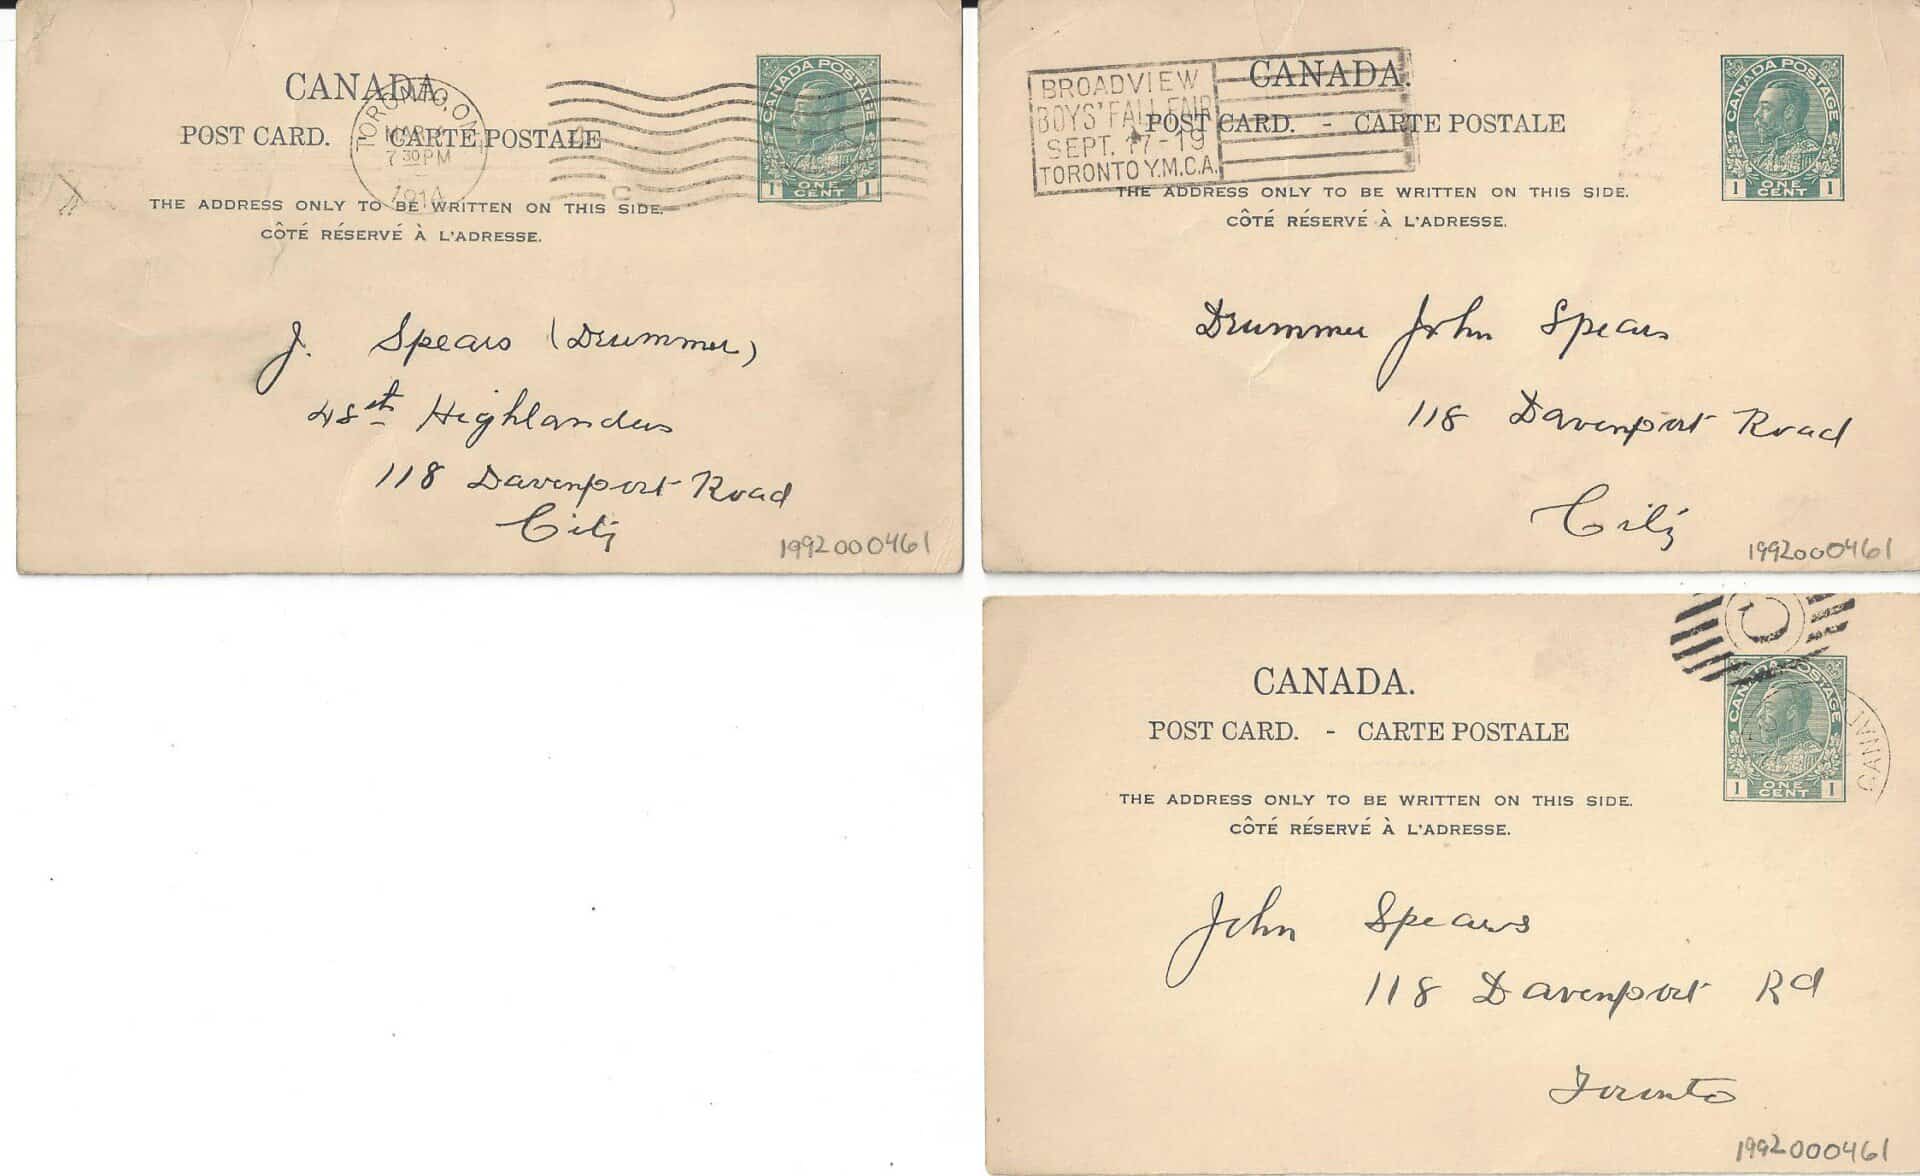 CANADA.
POST CARD. CARTE POSTALE
TORONTO, ONT
MAR
7 30 PM
1914
CANADA POSTAGE
1 ONE CENT 1
C
THE ADDRESS ONLY TO BE WRITTEN ON THIS SIDE.
CÔTÉ RÉSERVÉ À L'ADRESSE.
J. Spears (Drummer)
48th Highlanders
118 Davenport Road
City
1992000461
BROADVIEW
BOYS' FALL FAIR
SEPT. 17-19
TORONTO Y.M.C.A.
CANADA.
POST CARD. - CARTE POSTALE
CANADA POSTAGE
1 ONE CENT 1
THE ADDRESS ONLY TO BE WRITTEN ON THIS SIDE.
CÔTÉ RÉSERVÉ À L'ADRESSE.
Drummer John Spears
118 Davenport Road
City
1992000461
CANADA.
POST CARD. - CARTE POSTALE
CANADA POSTAGE
1 ONE CENT 1
THE ADDRESS ONLY TO BE WRITTEN ON THIS SIDE.
CÔTÉ RÉSERVÉ À L'ADRESSE.
John Spears
118 Davenport Rd
Toronto
1992000461